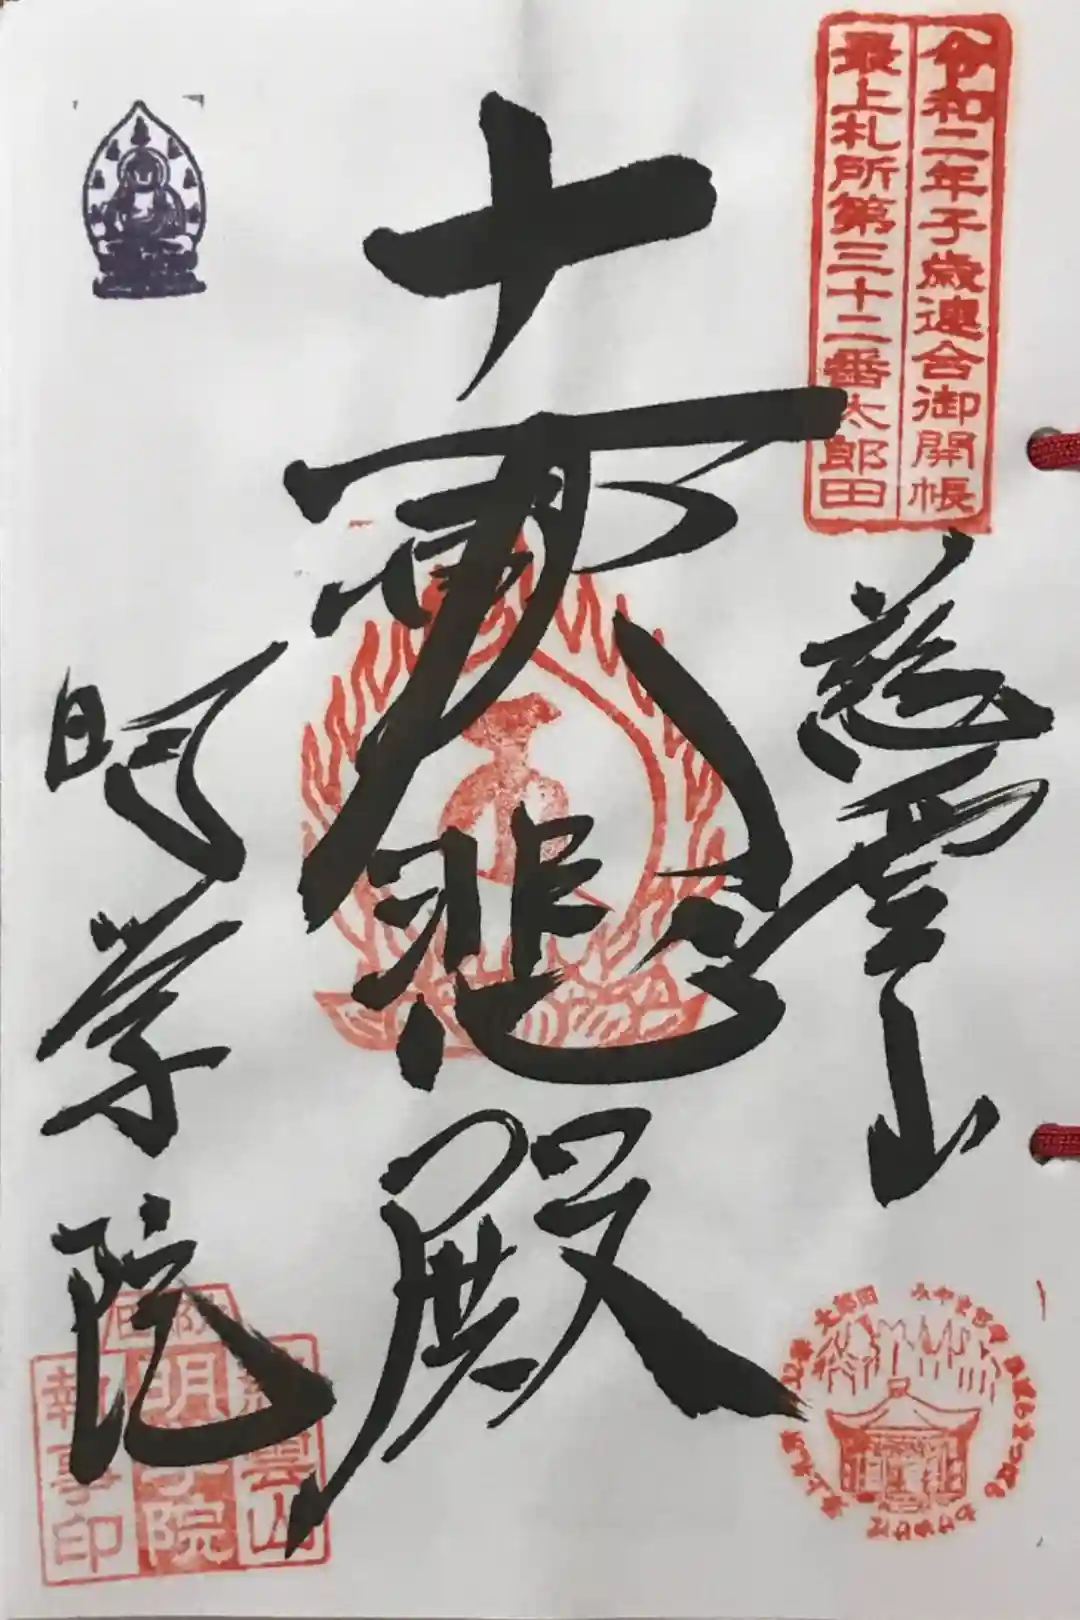 令和二年子歳連合御開帳
最上札所第三十二番太郎田
慈雲山
十一面
大悲殿
明学院
慈雲山
明学院
執事印
太郎田